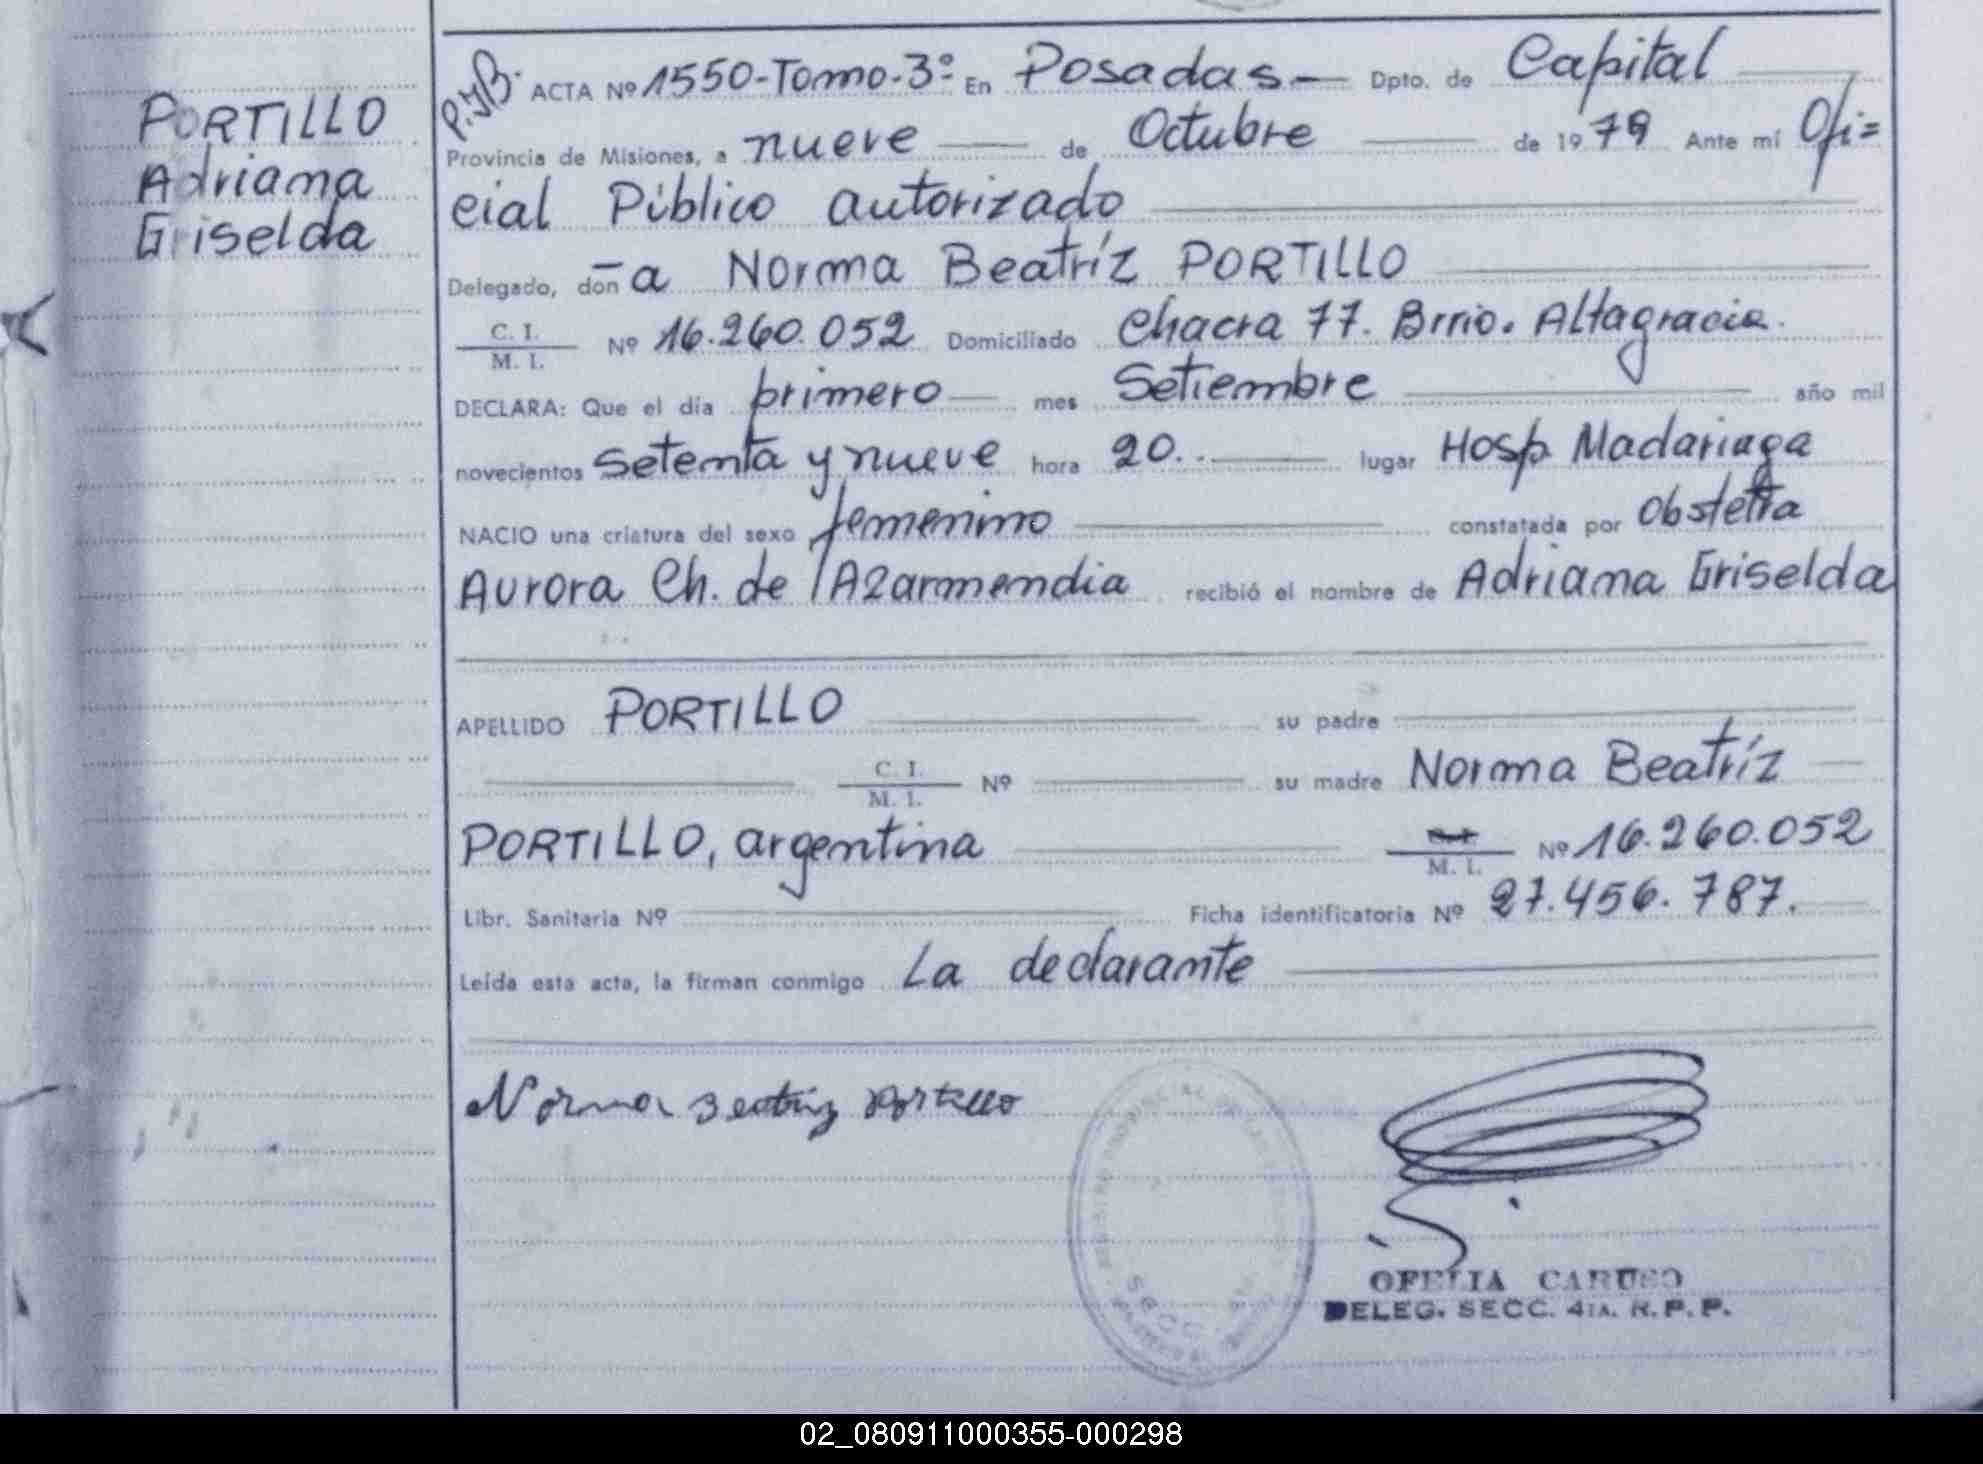 PORTILLO
Adriana
Griselda
P.yB. ACTA Nº 1550-Tomo-3º En Posadas Dpto. de Capital
Provincia de Misiones, a nueve de Octubre de 1979 Ante mí Ofi=
cial Público autorizado
Delegado, don-a Norma Beatríz PORTILLO
C. I. / M. I. Nº 16.260.052 Domiciliado Chacra 77. Brrio. Altagracia.
DECLARA: Que el día primero mes Setiembre año mil
novecientos Setenta y nueve hora 20. lugar Hosp. Madariaga
NACIO una criatura del sexo femenino constatada por Obstetra
Aurora Ch. de Azarmendia recibió el nombre de Adriana Griselda
APELLIDO PORTILLO su padre
C. I. / M. I. Nº su madre Norma Beatríz
PORTILLO, argentina M. I. Nº 16.260.052
Libr. Sanitaria Nº Ficha identificatoria Nº 27.456.787.
Leída esta acta, la firman conmigo La declarante
Norma Beatriz Portillo
OFELIA CARUSO
DELEG. SECC. 4TA. R. P. P.
02_080911000355-000298